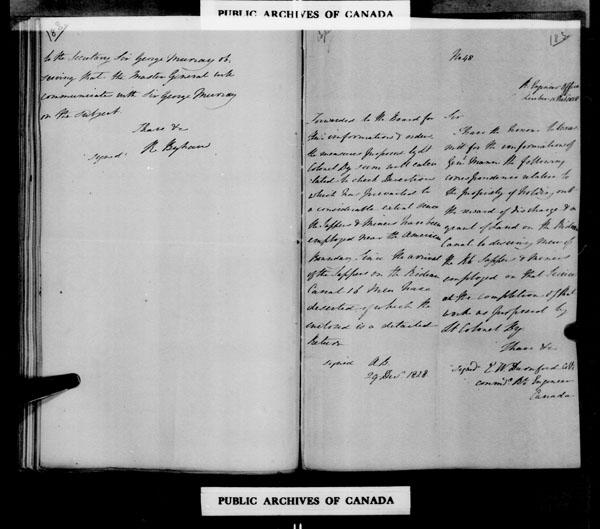 PUBLIC ARCHIVES OF CANADA
183
to the Secretary Sir George Murray ob.
serving that the Master General will
communicate with Sir George Murray
on the subject
I have &c
signed R Byham
183
No 48
R. Engineer Office
Forwarded to the Board for
their information & orders
the measures proposed by Lt
Colonel By seem well calcu
lated to check Desertion
which has prevailed to
a considerable extent since
the Sappers & Miners have been
employed near the American
Boundary. Since the arrival
of the Sappers on the Rideau
Canal 16 Men have
deserted of which the
enclosed is a detailed
Return
signed
29 Decr 1828
Sir
I have the honor to trans
mit for the information of
Genl Mann the following
correspondence relative to
the propriety of holding out
the reward of discharge & a
grant of Land on the Rideau
Canal to deserving men of
the Rl Sappers & Miners
employed on that Service
at the completion of that
work as proposed by
Lt Colonel By
I have &c
signed E W Durnford Coll
commg Rl Engineer
Canada
PUBLIC ARCHIVES OF CANADA